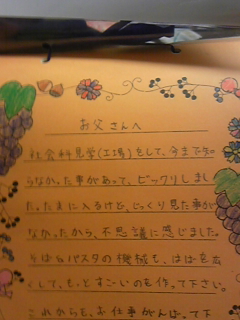 お父さんへ
社会科見学(工場)をして、今まで知
らなかった事があって、ビックリしまし
た。たまに入るけど、じっくり見た事が
なかったから、不思議に感じました。
そば&パスタの機械も、はば広
くして、もっとすごいのも作って下さい。
これからも、お仕事がんばって下